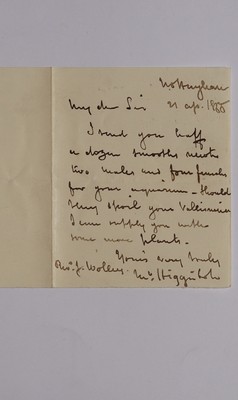 Nottingham
My dr Sir 21 Ap. 1865
I send you half
a dozen smooth newts
two males and four females
for your aquarium - Should
they spoil your Vallisneria
I can supply you with
some more plants.
Yours very truly